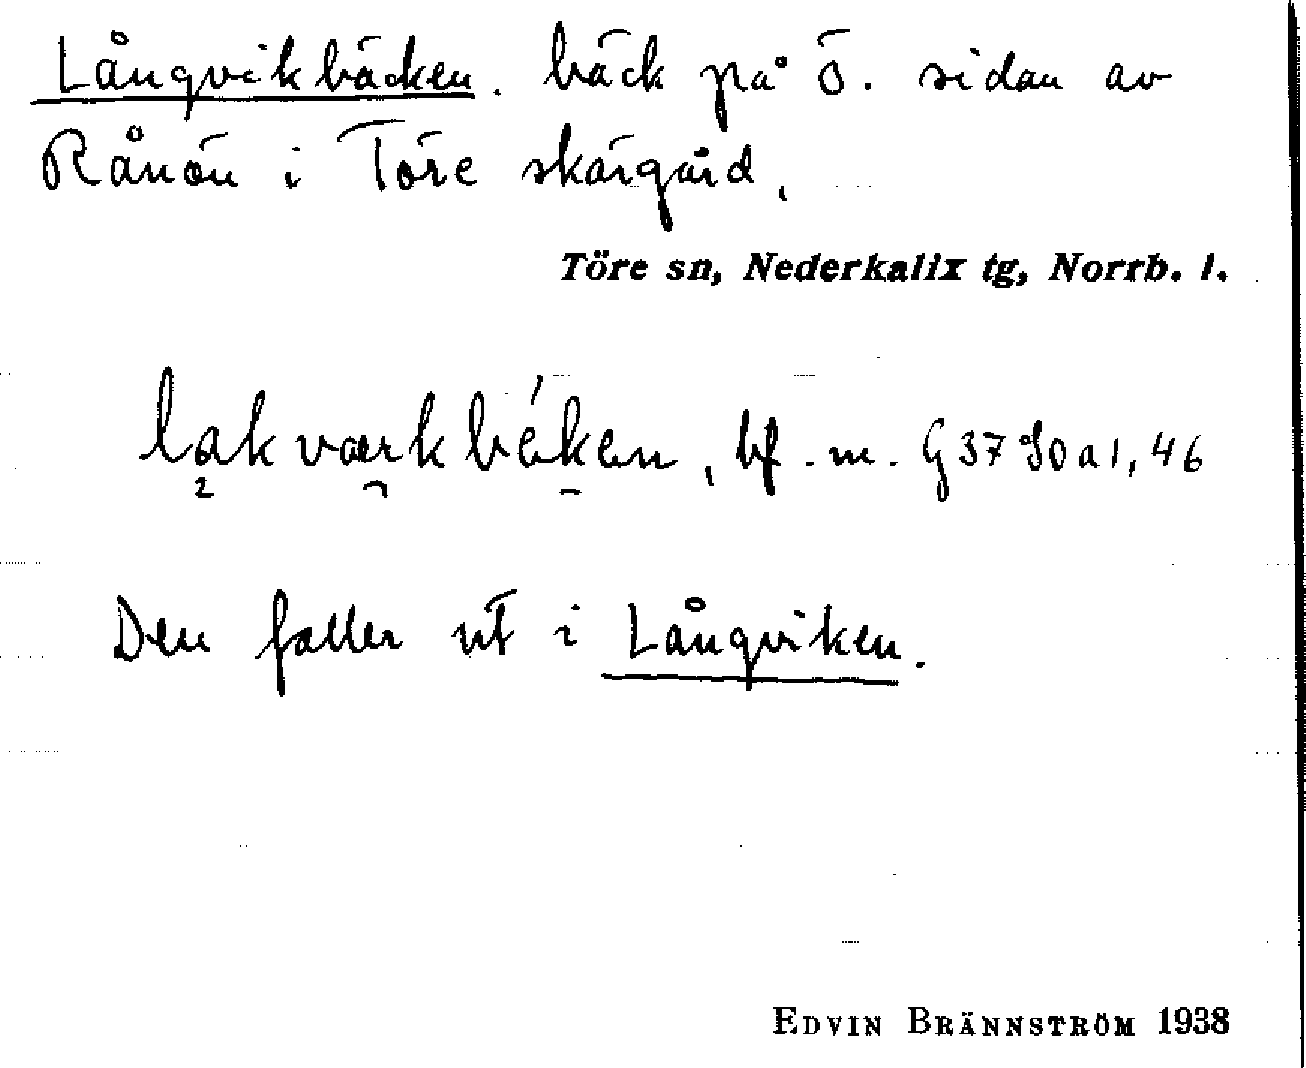 Långvikbäcken. bäck på ö. sidan av
Rånön i Töre skärgård.
Töre sn, Nederkalix tg, Norrb. l.
bf. m. G 37
Den faller ut i Långviken.
EDVIN BRÄNNSTRÖM 1938